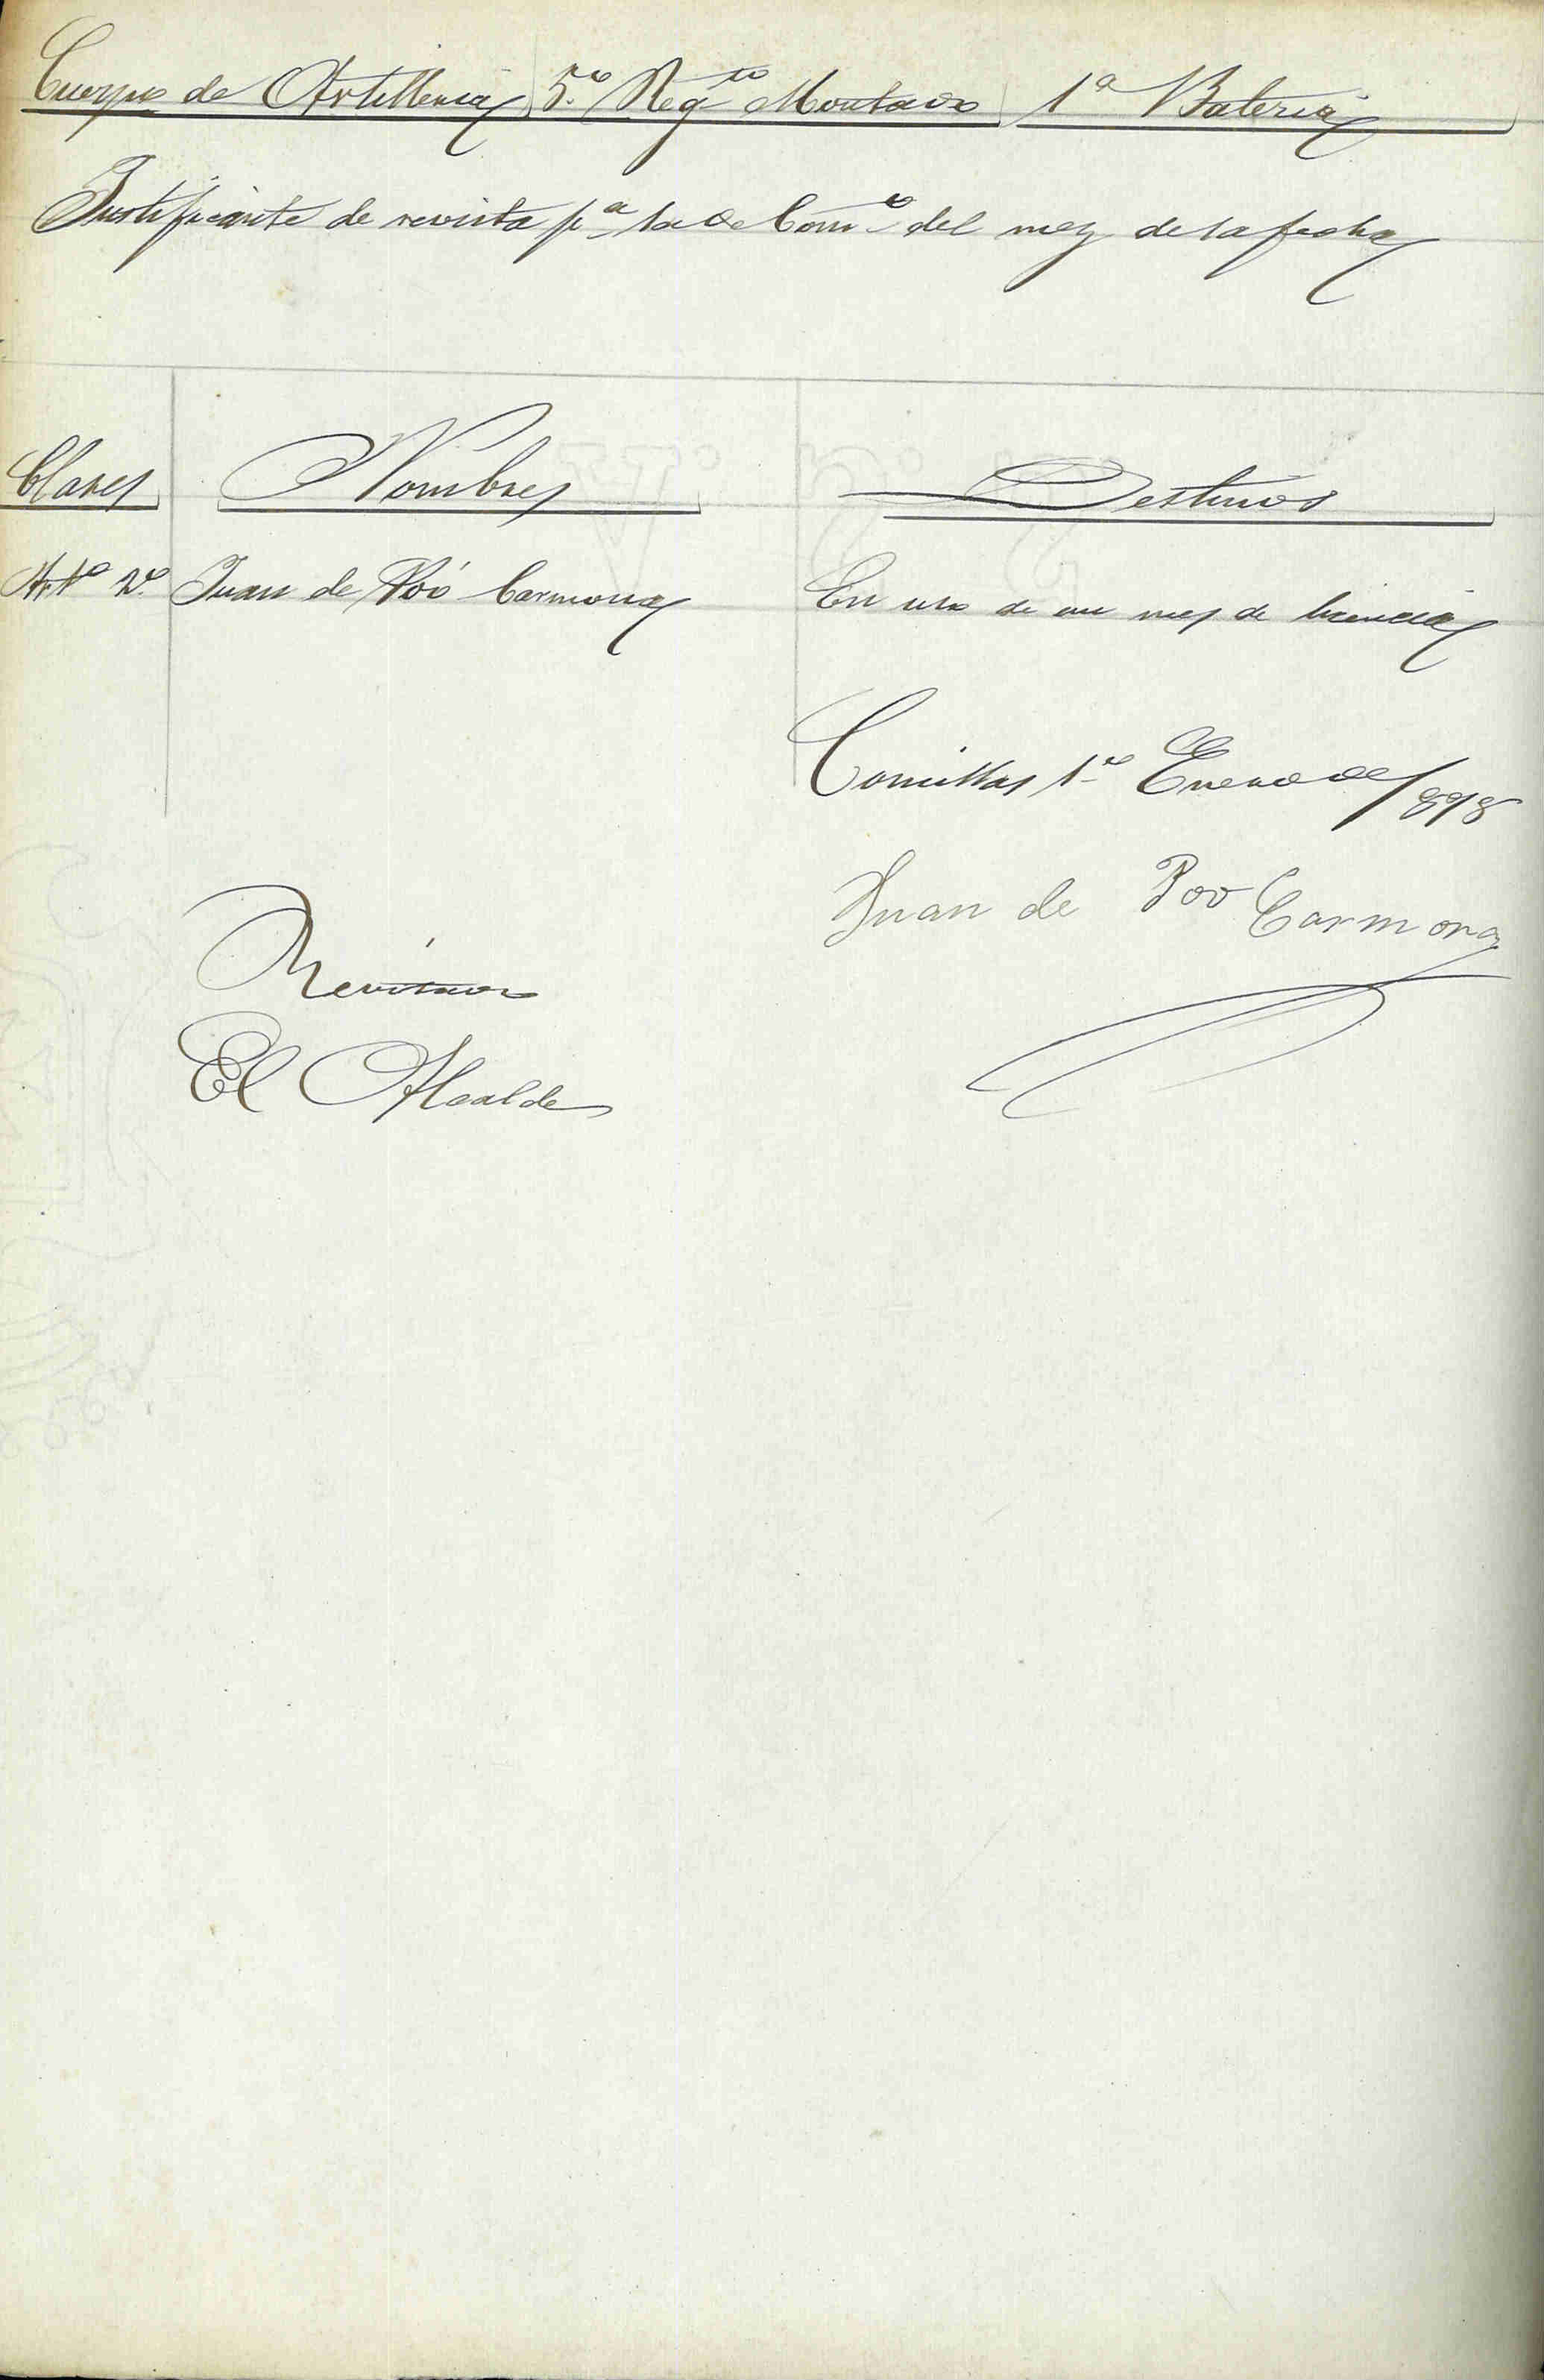 Cuerpo de Artillería 5.º Reg.to Montado 1ª Batería
Justificante de revista p.ª la de Com.º del mes de la fecha
Clases Nombres Destinos
Art.º 2.º Juan de Poó Carmona En uso de un mes de licencia
Comillas 1.º Enero de 1898
Juan de Poo Carmona
Revistado
El Alcalde